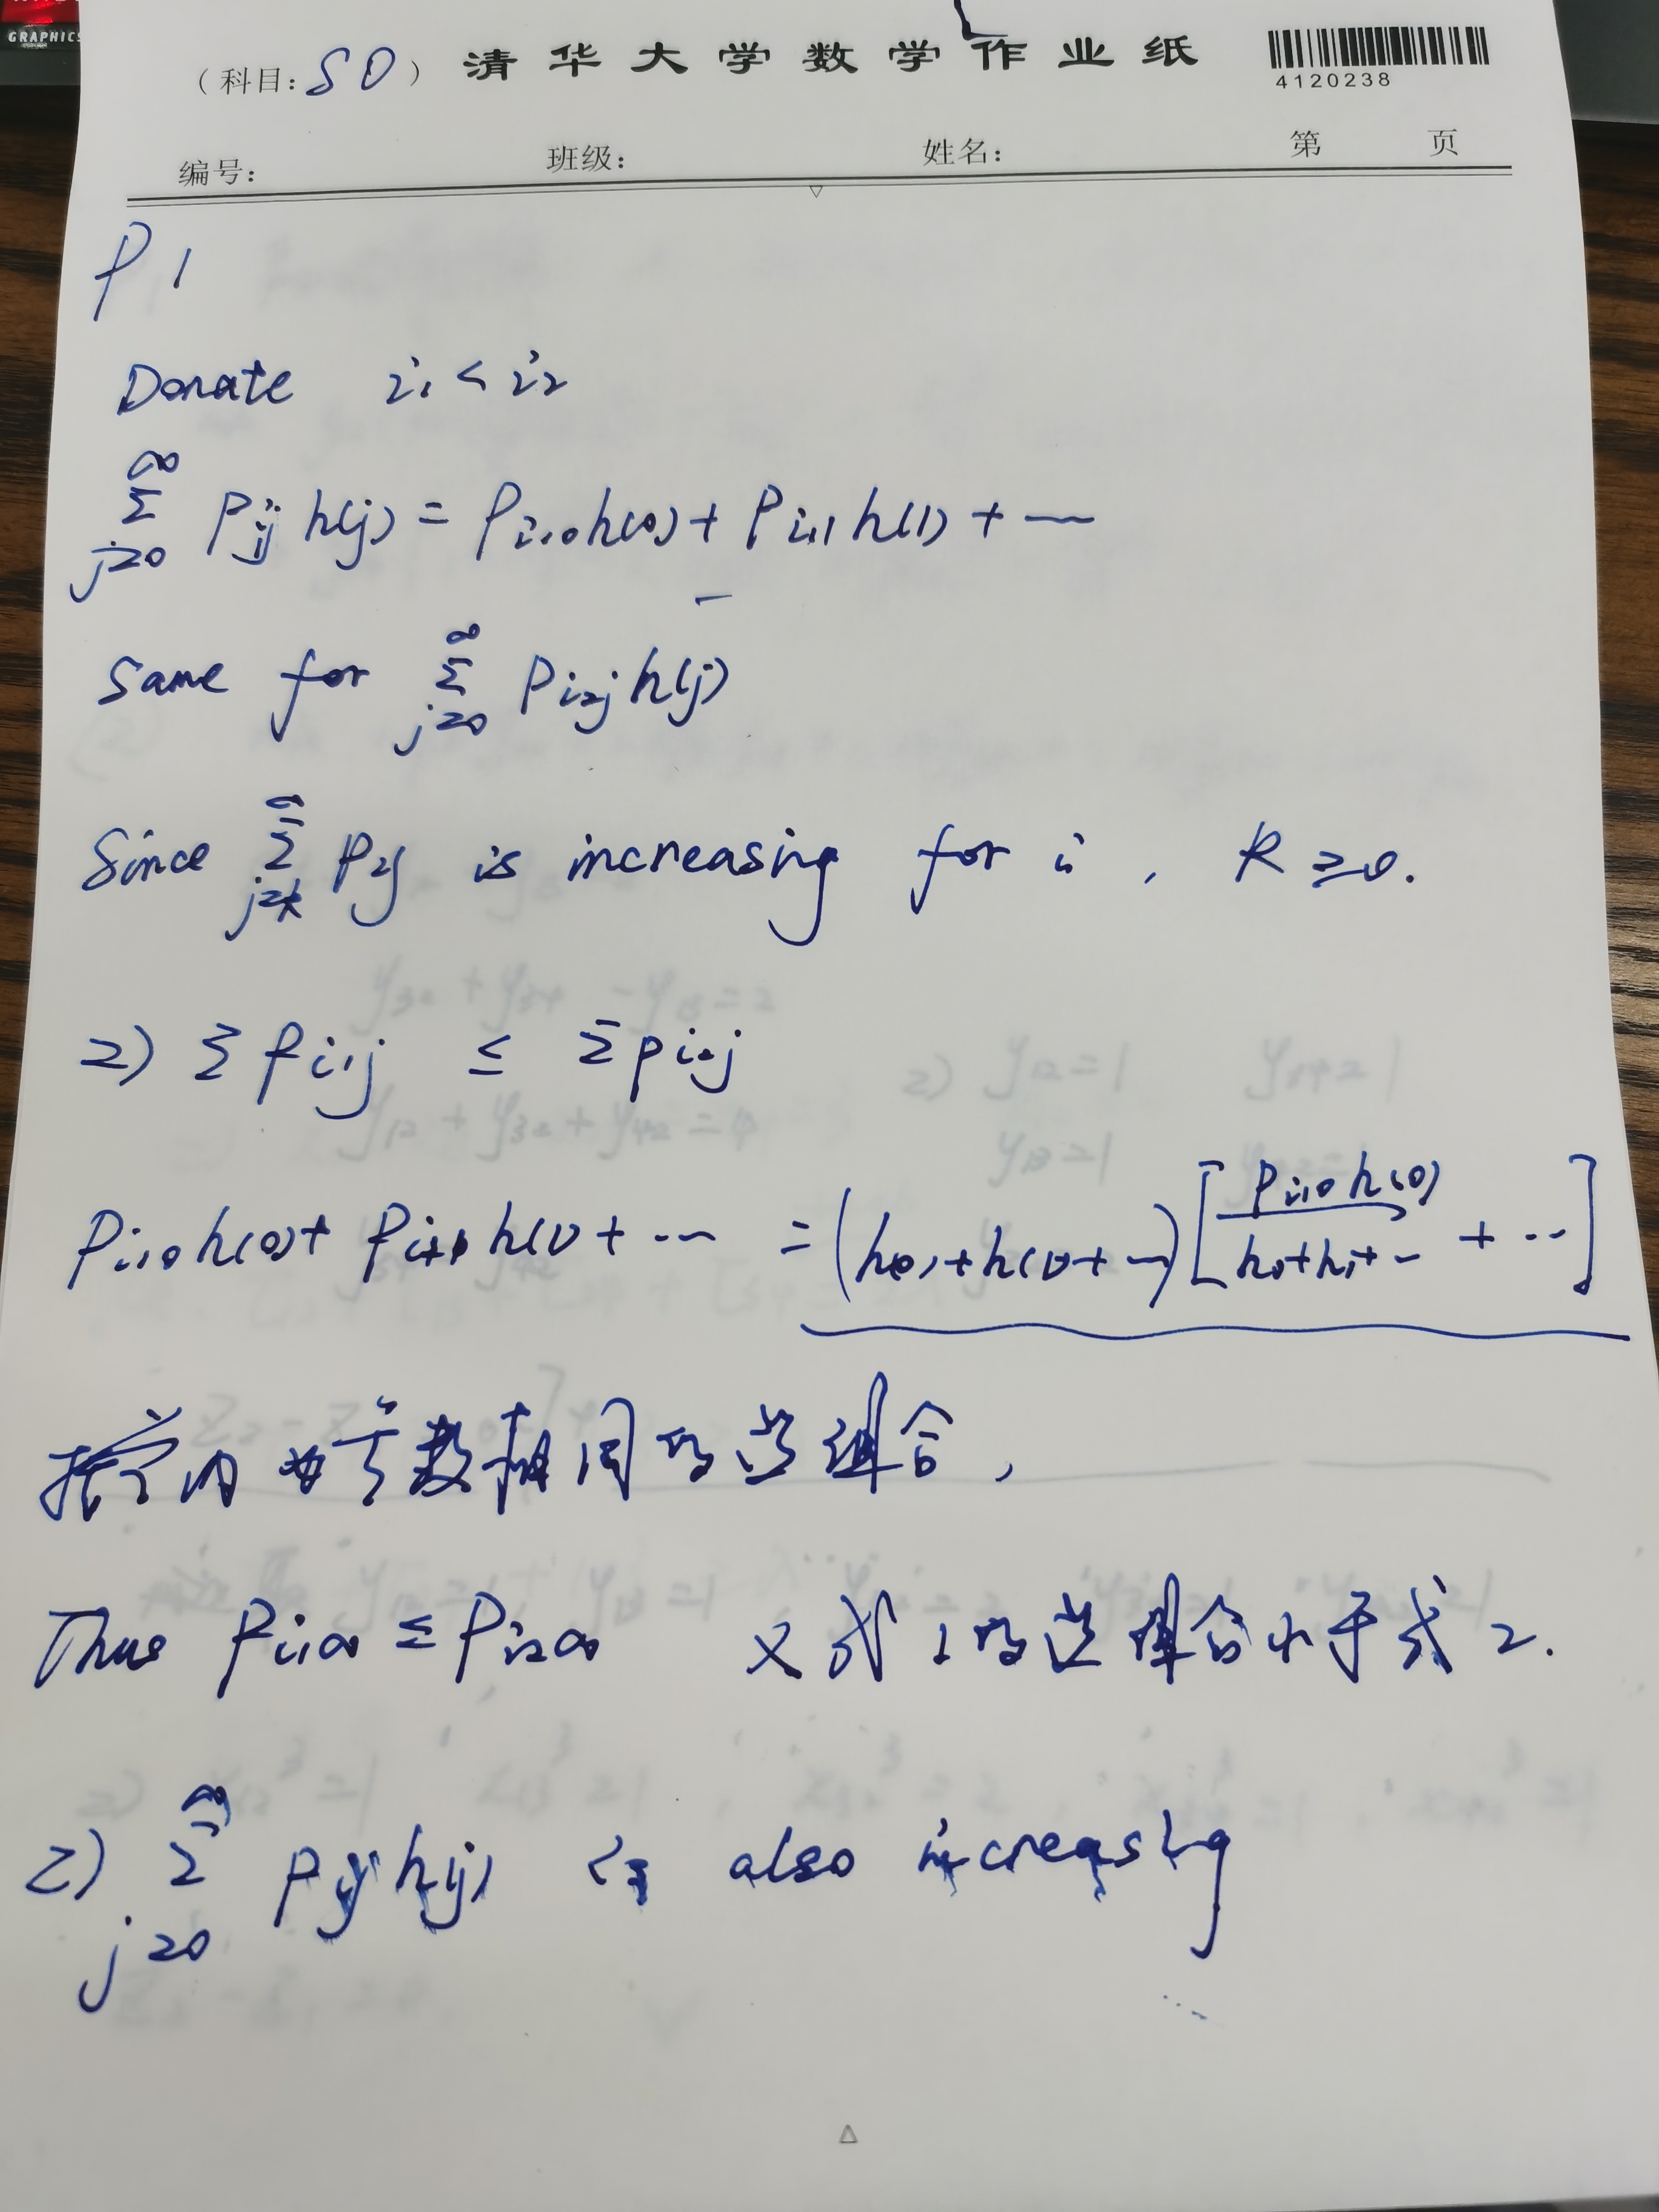 GRAPHICS
(科目: SO) 清华大学数学作业纸
4120238
编号: 班级: 姓名: 第 页
P1
Donate i₁ < i₂
∑_{j=0}^{∞} P_{ij} h(j) = P_{i₁0}h(0) + P_{i₁1}h(1) + ⋯
Same for ∑_{j=0}^{∞} P_{i₂j} h(j)
Since ∑_{j=k}^{∞} P_{ij} is increasing for i , k ≥ 0.
⇒) ∑ P_{i₁j} ≤ ∑ P_{i₂j}
P_{i₁0}h(0) + P_{i₁1}h(1) + ⋯ = (h(0) + h(1) + ⋯) [ P_{i₁0}h(0) / h₀+h₁+⋯ + ⋯ ]
括号内为系数相同的凸组合,
Thus P_{i₁∞} ≤ P_{i₂∞} 又式1的凸组合小于式2.
⇒) ∑_{j=0}^{∞} P_{ij} h(j) is also increasing